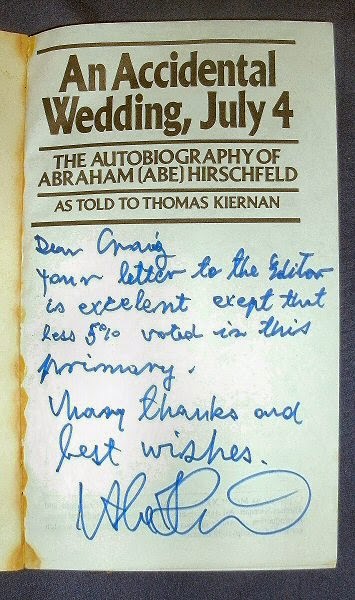 An Accidental
Wedding, July 4
THE AUTOBIOGRAPHY OF
ABRAHAM (ABE) HIRSCHFELD
AS TOLD TO THOMAS KIERNAN
Dear Craig
Your letter to the Editor
is excelent exept that
less 5% voted in this
primary.
Many thanks and
best wishes.